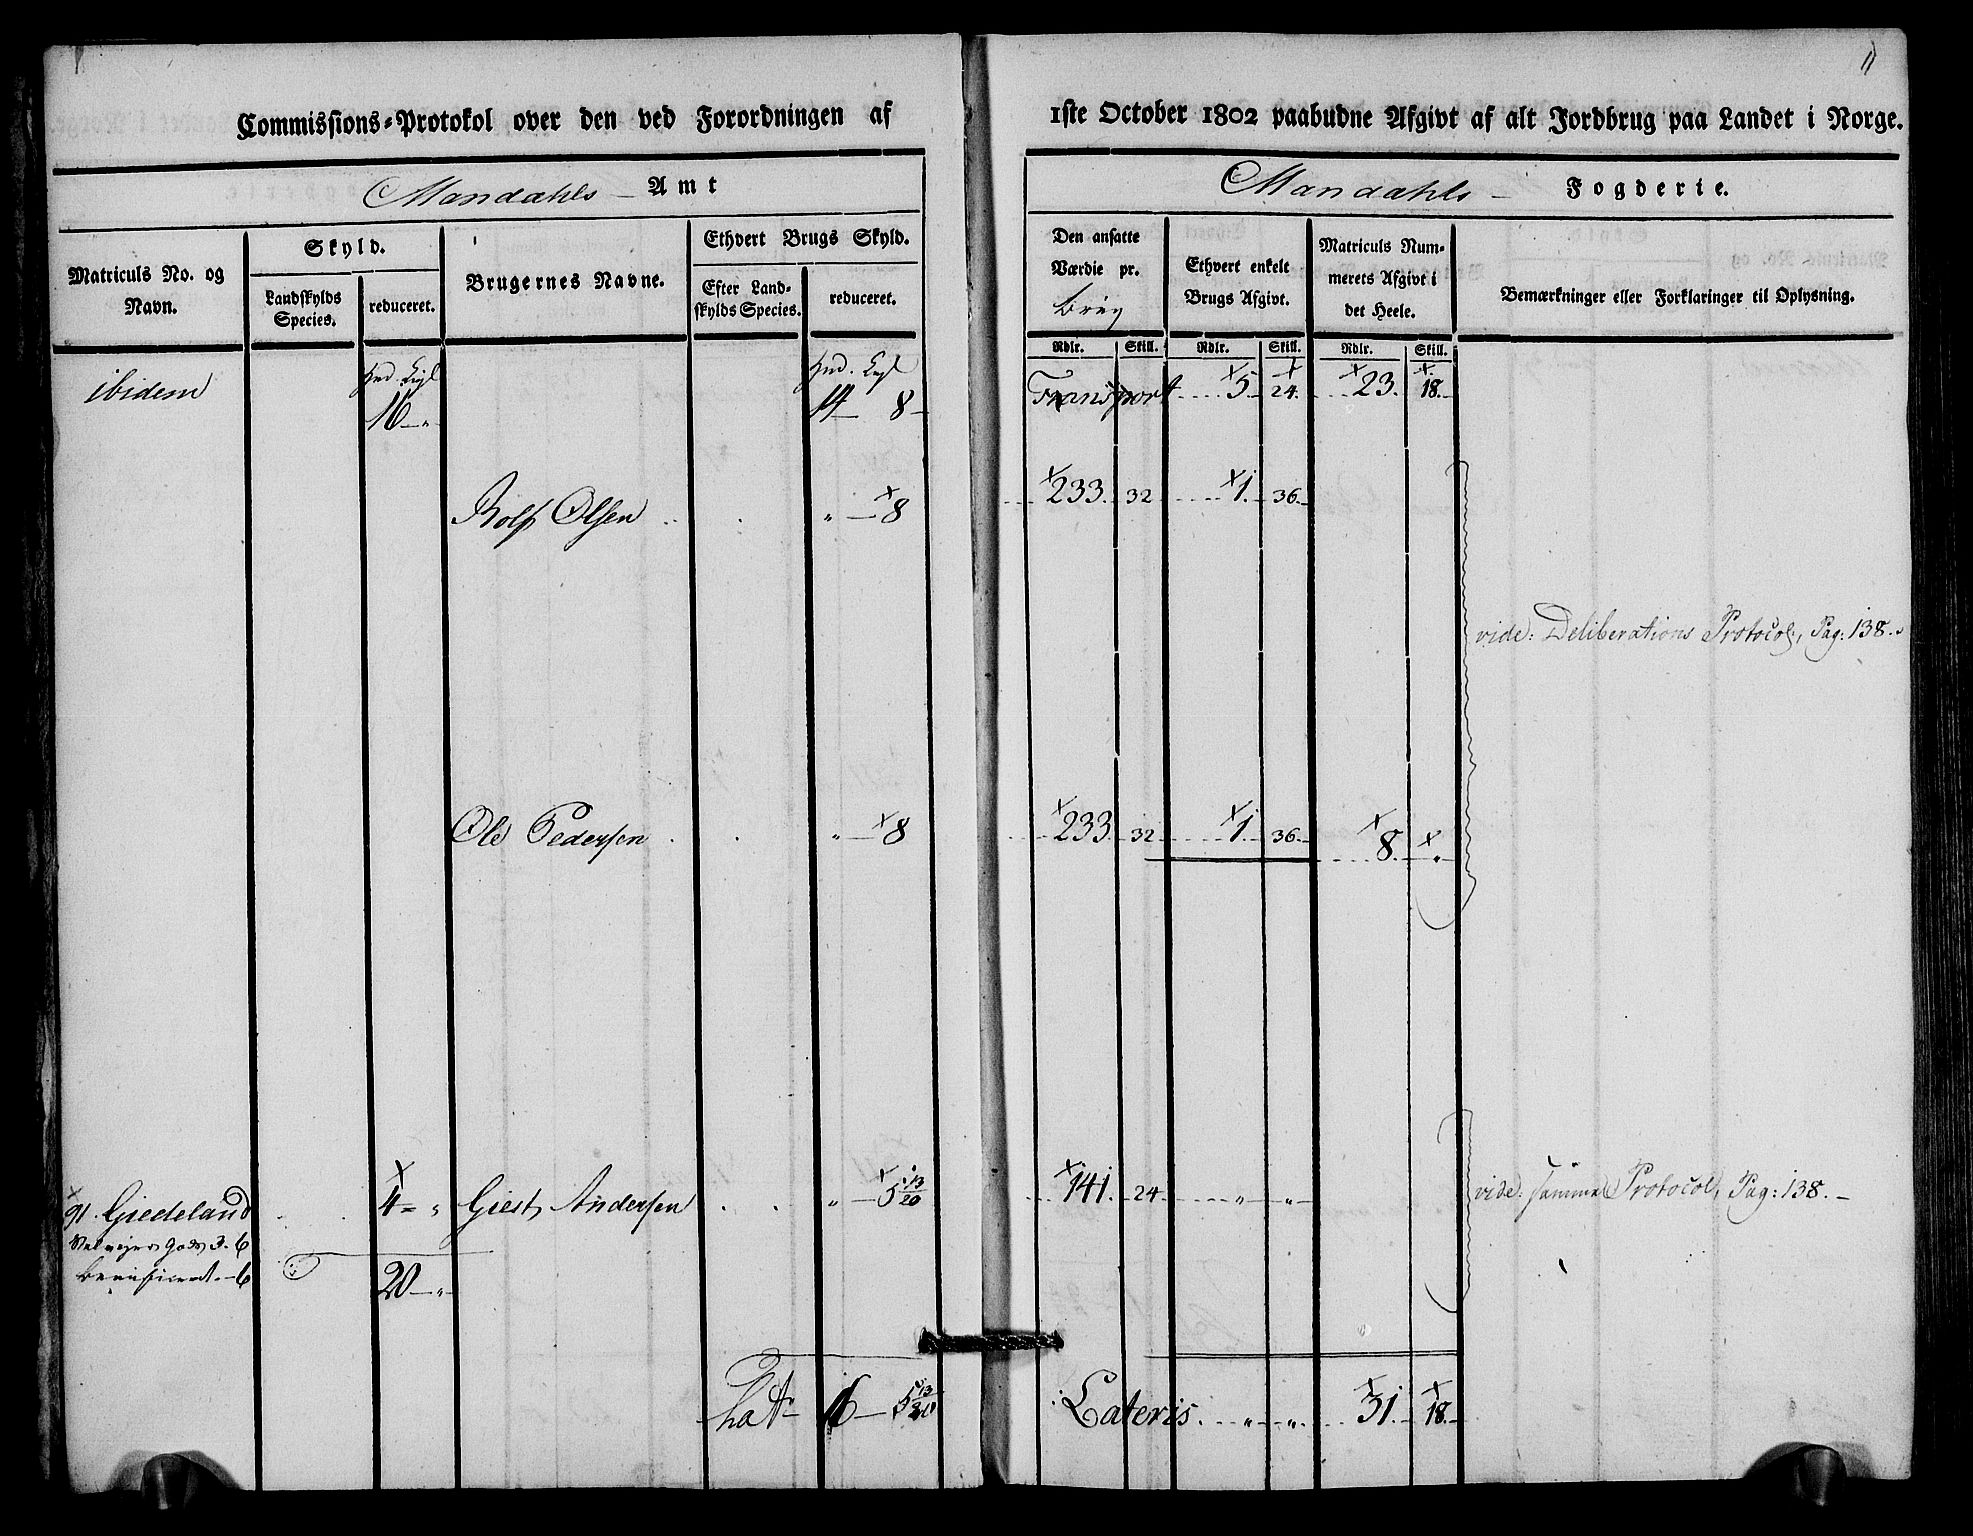 11
Commissions-Protokol over den ved Forordningen af 1ste October 1802 paabudne Afgivt af alt Jordbrug paa Landet i Norge.
Mandahls Amt
Mandahls Fogderie.
Matriculs No. og Navn.
Skyld.
Landskylds Species.
reduceret.
Brugernes Navne.
Ethvert Brugs Skyld.
Efter Landskylds Species.
reduceret.
Den ansatte Værdie pr. brug
Ethvert enkelt Brugs Afgivt.
Matriculs Nummerets Afgivt i det Heele.
Bemærkninger eller Forklaringer til Oplysning.
Rdlr. Skill. Rdlr. Skill. Rdlr. Skill.
ibidem 16 - " 14 - 8 - Transport 5 - 24. 23. 18.
Rolf Olsen " - 8 233. 32 1. 36.
vide: Deliberations Protocol, Pag: 138.
Ole Pedersen " - 8 233. 32 1. 36. 8. "
91. Giedeland 4 = " Giest Andersen " - 5 13/20 141. 24 " " vide: samme Protocol, Pag: 138. -
Gods 3. 6
beneficeret. - 6
20 - "
Lat 16 - 5 13/20 Lateris " " 31. 18.